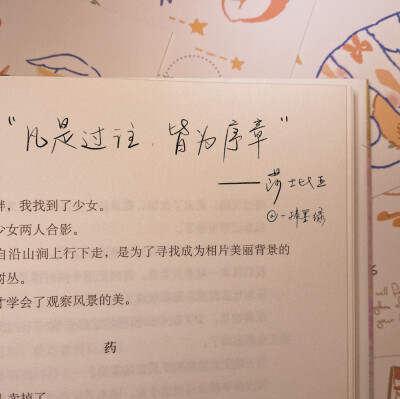 “凡是过往，皆为序章”
——莎士比亚
@一捧墨绿
，我找到了少女。
少女两人合影。
自沿山涧上行下走，是为了寻找成为相片美丽背景的
树丛。
才学会了观察风景的美。
药